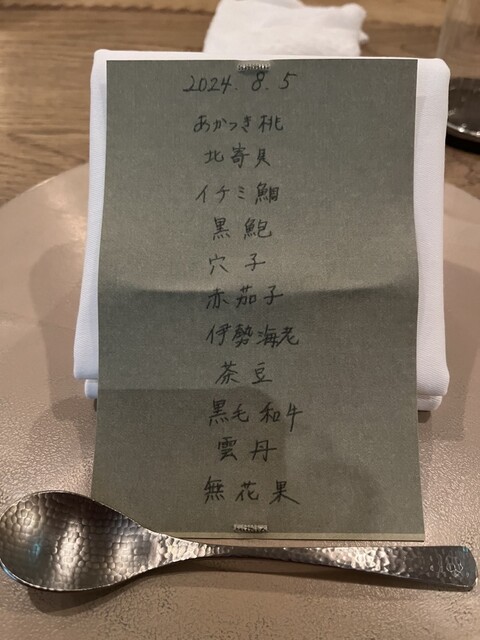 2024. 8. 5
あかつき桃
北寄貝
イケミ鯛
黒鮑
穴子
赤茄子
伊勢海老
茶豆
黒毛和牛
雲丹
無花果